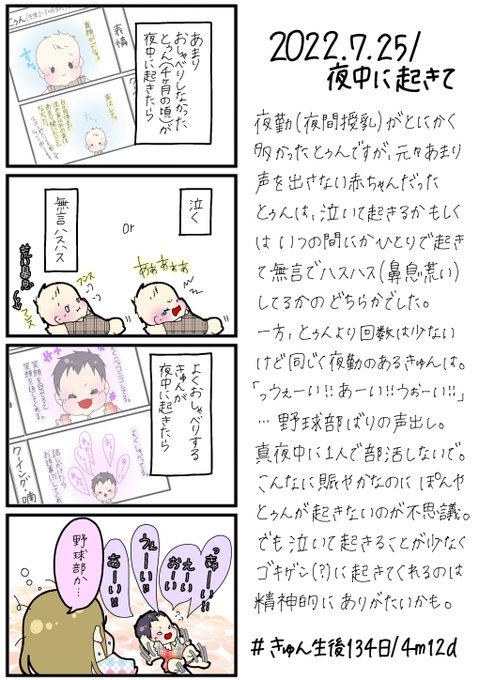 とぅん
表情
真顔がデフォ。
あまり
おしゃべりしなかった
とぅん(4ヶ月の頃)が
夜中に起きたら
泣く
or
無言ハスハス
あぁぁぁぁ
フンス
フンス
荒い鼻息
よくおしゃべりする
きゅんが
夜中に起きたら
よくニコニコしてる。
笑顔を見せると
笑顔を返してくれる。
クーイング・喃
話しかけたら
お返事が
野球部か…
っあーい!!
えーい
おーい!!
うぇーい!!
あーい!!
2022.7.25/
夜中に起きて
夜勤(夜間授乳)がとにかく
多かったとぅんですが、元々あまり
声を出さない赤ちゃんだった
とぅんは、泣いて起きるかもしく
はいつの間にかひとりで起き
て無言でハスハス(鼻息荒い)
してるかのどちらかでした。
一方、とぅんより回数は少ない
けど同じく夜勤のあるきゅんは。
「っうぇーい!!あーい!!うぉーい!!」
…野球部ばりの声出し。
真夜中に1人で部活しないで。
こんなに賑やかなのにぽんや
とぅんが起きないのが不思議。
でも泣いて起きることが少なく
ゴキゲン(?)に起きてくれるのは
精神的にありがたいかも。
#きゅん生後134日/4m12d